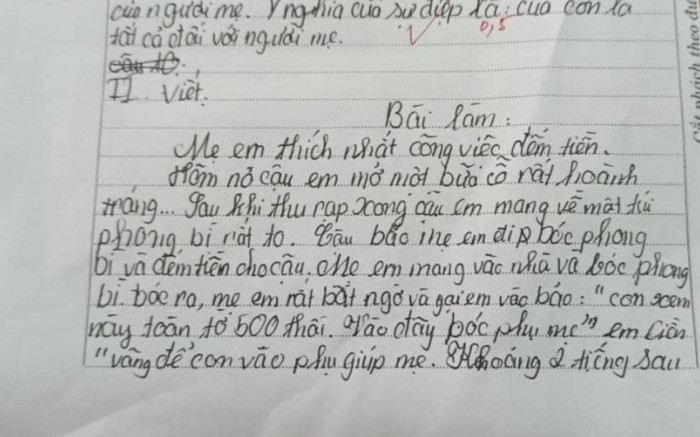 của người mẹ. Ý nghĩa của sự điệp là: của con là
0,5
tất cả đối với người mẹ.
câu 10:
II. Viết.
Bài làm:
Mẹ em thích nhất công việc đếm tiền.
Hôm nọ cậu em mở một bữa cỗ rất hoành
tráng... Sau khi thu rạp xong cậu em mang về một túi
phong bì rất to. Cậu bảo mẹ em bóc phong
bì và đếm tiền cho cậu. Mẹ em mang vào nhà và bóc phong
bì. bóc ra, mẹ em rất bất ngờ và gọi em vào bảo: "con xem
này toàn tờ 500 thôi. Vào đây bóc phụ mẹ" em liền
"vâng để con vào phụ giúp mẹ. Khoảng 2 tiếng sau